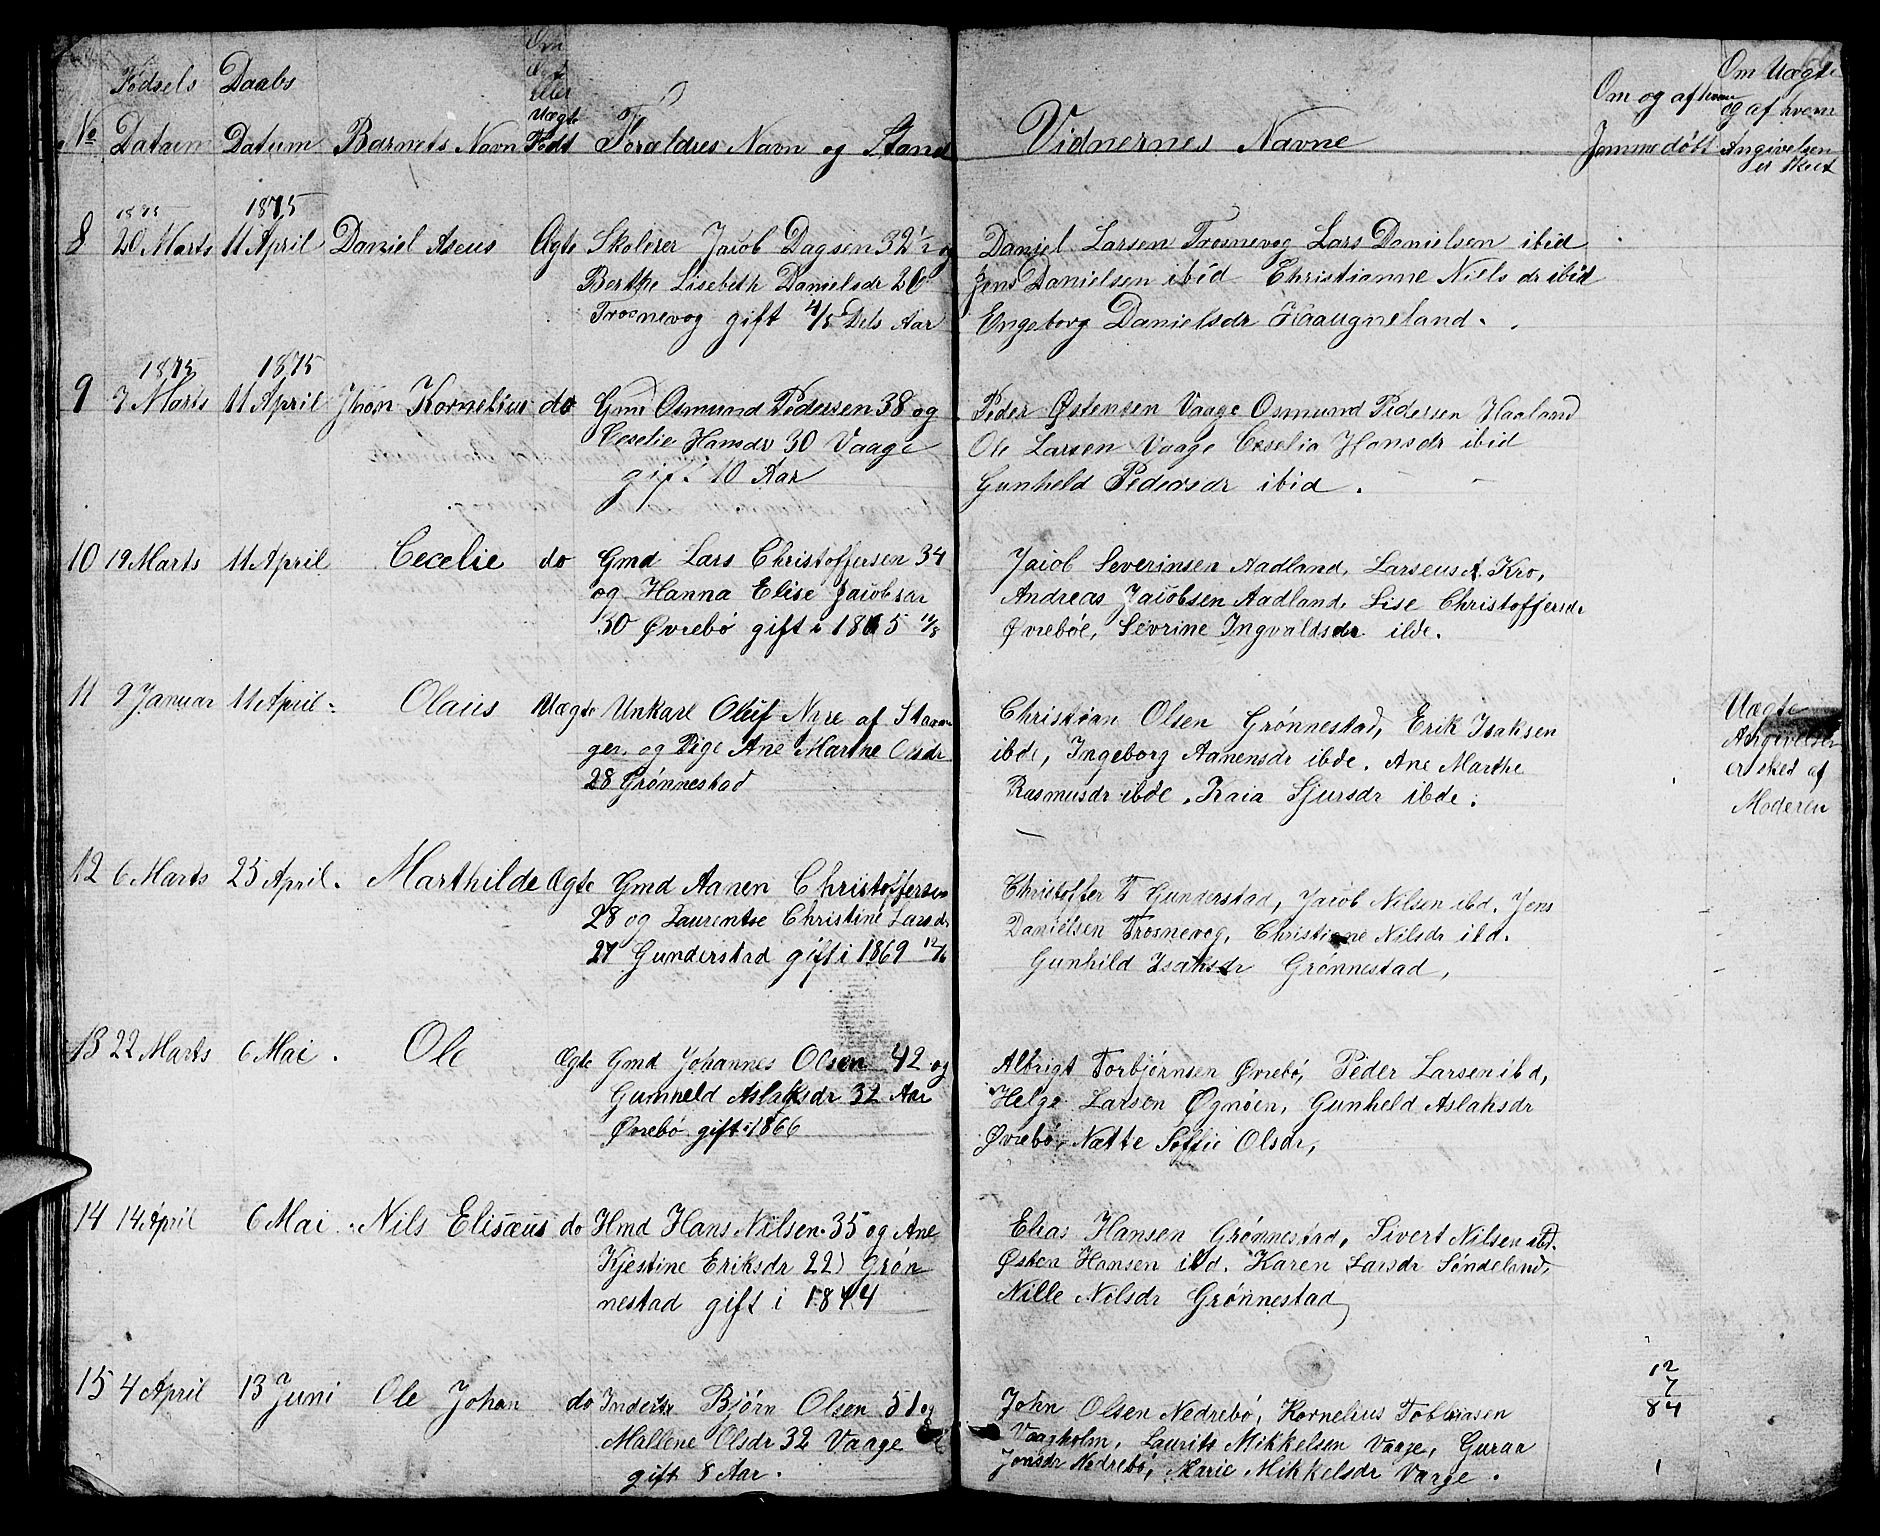 Fødsels Daabs
Om Ægte eller Uægte Født
No Datum Datum Barnets Navn Forældres Navn og Stand
1875 1875
8 20 Marts 11 April Daniel Aseus Ægte Skolerer Jacob Dagsen 32 1/2 og
Berthe Lisebeth Danielsdr 20
Trosnevog gift 4/5 Dels Aar
1875 1875
9 7 Marts 11 April Jhon Kornelius do Gmd Osmund Pedersen 38 og
Ceselie Hansdr 30 Vaage
gift 10 Aar
10 19 Marts 11 April Cecelie do Gmd Lars Christoffersen 34
og Hanna Elise Jacobsdr
30 Øvrebø gift i 1865
11 9 Januar 11 April Olaus Uægte Unkarl Oluf Nyre af Stavan
ger og Pige Ane Marthe
28 Grønnestad
12 6 Marts 25 April. Marthilde Ægte Gmd Aanen Christoffersen
28 og Laurentse Christine Larsdr
27 Gunderstad gift i 1869
13 22 Marts 6 Mai. Ole Ægte Gmd Johannes Olsen 42 og
Gunneld Aslaksdr 32 Aar
Øvrebø gift i 1866
14 14 April 6 Mai. Nils Elisæus do Hmd Hans Nilsen 35 og Ane
Kjestine Eriksdr 22) Grøn
nestad gift i 1874
15 4 April 13 Juni Ole Johan do Inderst Bjørn Olsen 51 og
Mallene Olsdr 32 Vaage
gift 8 Aar.
Vidnernes Navne
Om og af hvem
Jemmedøbt
Om Uægte
og af hvem
Angivelsen
er skeet
Daniel Larsen Trosnevog Lars Danielsen ibid
Jens Danielsen ibid Christianne Niels dr ibid
Engeborg Danielsdr Haaugneland.
Peder Østensen Vaage Osmund Pedersen Haaland
Ole Larsen Vaage Ceselia Hansdr ibid
Gunheld Pedersdr ibid.
Jacob Severinsen Aadland, Larseus A. Kro,
Andreas Jacobsen Aadland, Lise Christoffersdr
Øvrebøe, Sevrine Ingvaldsdr ibde.
Christian Olsen Grønnestad, Erik Isaksen
ibde, Ingeborg Aanensdr ibde. Ane Marthe
Rasmusdr ibde, Kaia Sjursdr ibde.
Uægte
Angivelsen
er sked af
Moderen
Christoffer T Gunderstad, Jacob Nilsen ibd. Jens
Danielsen Trosnevog, Christiane Nilsdr ibd.
Gunhild Isaksdr Grønnestad,
Albrigt Torbjørnsen Øvrebø, Peder Larsen ibd,
Helge Larsen Øgnøen, Gunheld Aslaksdr
Øvrebø, Nætte Soffie Olsdr,
Elias Hansen Grønnestad, Sivert Nilsen ibd.
Østen Hansen ibd. Karen Larsdr Søndeland,
Nille Nilsdr Grønnestad,
12
7
84
John Olsen Nedrebø, Kornelius Tobbiasen
Vaagholm, Laurits Mikkelsen Vaage, Guraa
Jonsdr Nedrebø, Marie Mikkelsdr Vaage.